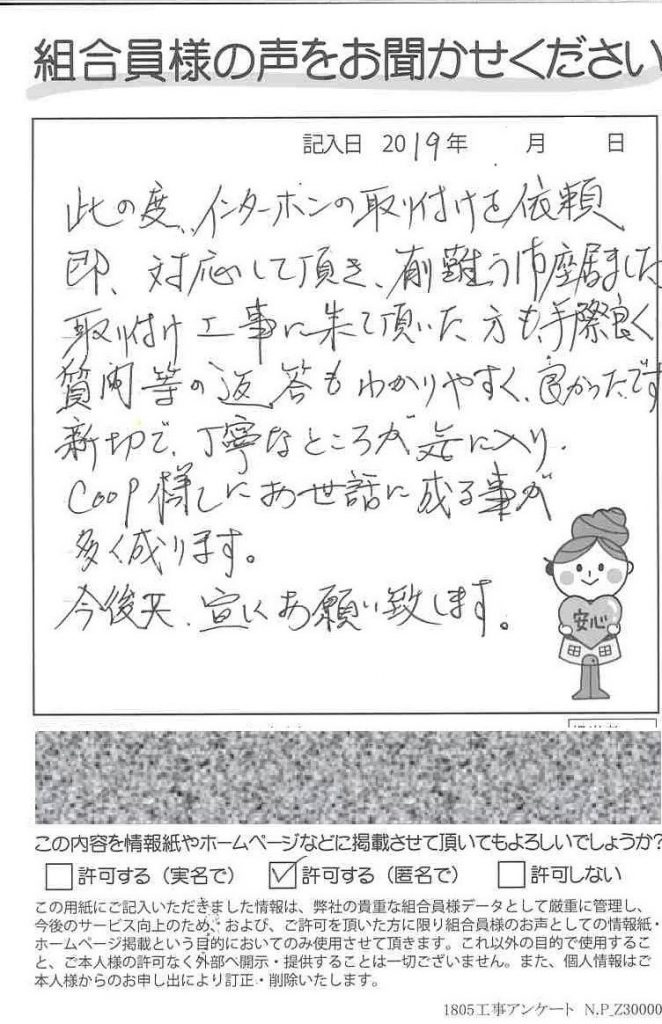 組合員様の声をお聞かせください
記入日 2019年 月 日
此の度、インターホンの取り付けを依頼
即、対応して頂き、有難う御座居ました
取り付け工事に来て頂いた方も、手際良く
質問等の返答もわかりやすく、良かったです
新切で、丁寧なところが気に入り、
COOP様にお世話に成る事が
多く成ります。
今後共、宜しくお願い致します。
安心
この内容を情報紙やホームページなどに掲載させて頂いてもよろしいでしょうか?
許可する(実名で) 許可する(匿名で) 許可しない
この用紙にご記入いただきました情報は、弊社の貴重な組合員様データとして厳重に管理し、
今後のサービス向上のため、および、ご許可を頂いた方に限り組合員様のお声としての情報紙・
ホームページ掲載という目的においてのみ使用させて頂きます。これ以外の目的で使用するこ
と、ご本人様の許可なく外部へ開示・提供することは一切ございません。また、個人情報はご
本人様からのお申し出により訂正・削除いたします。
1805工事アンケート N.P_Z30000